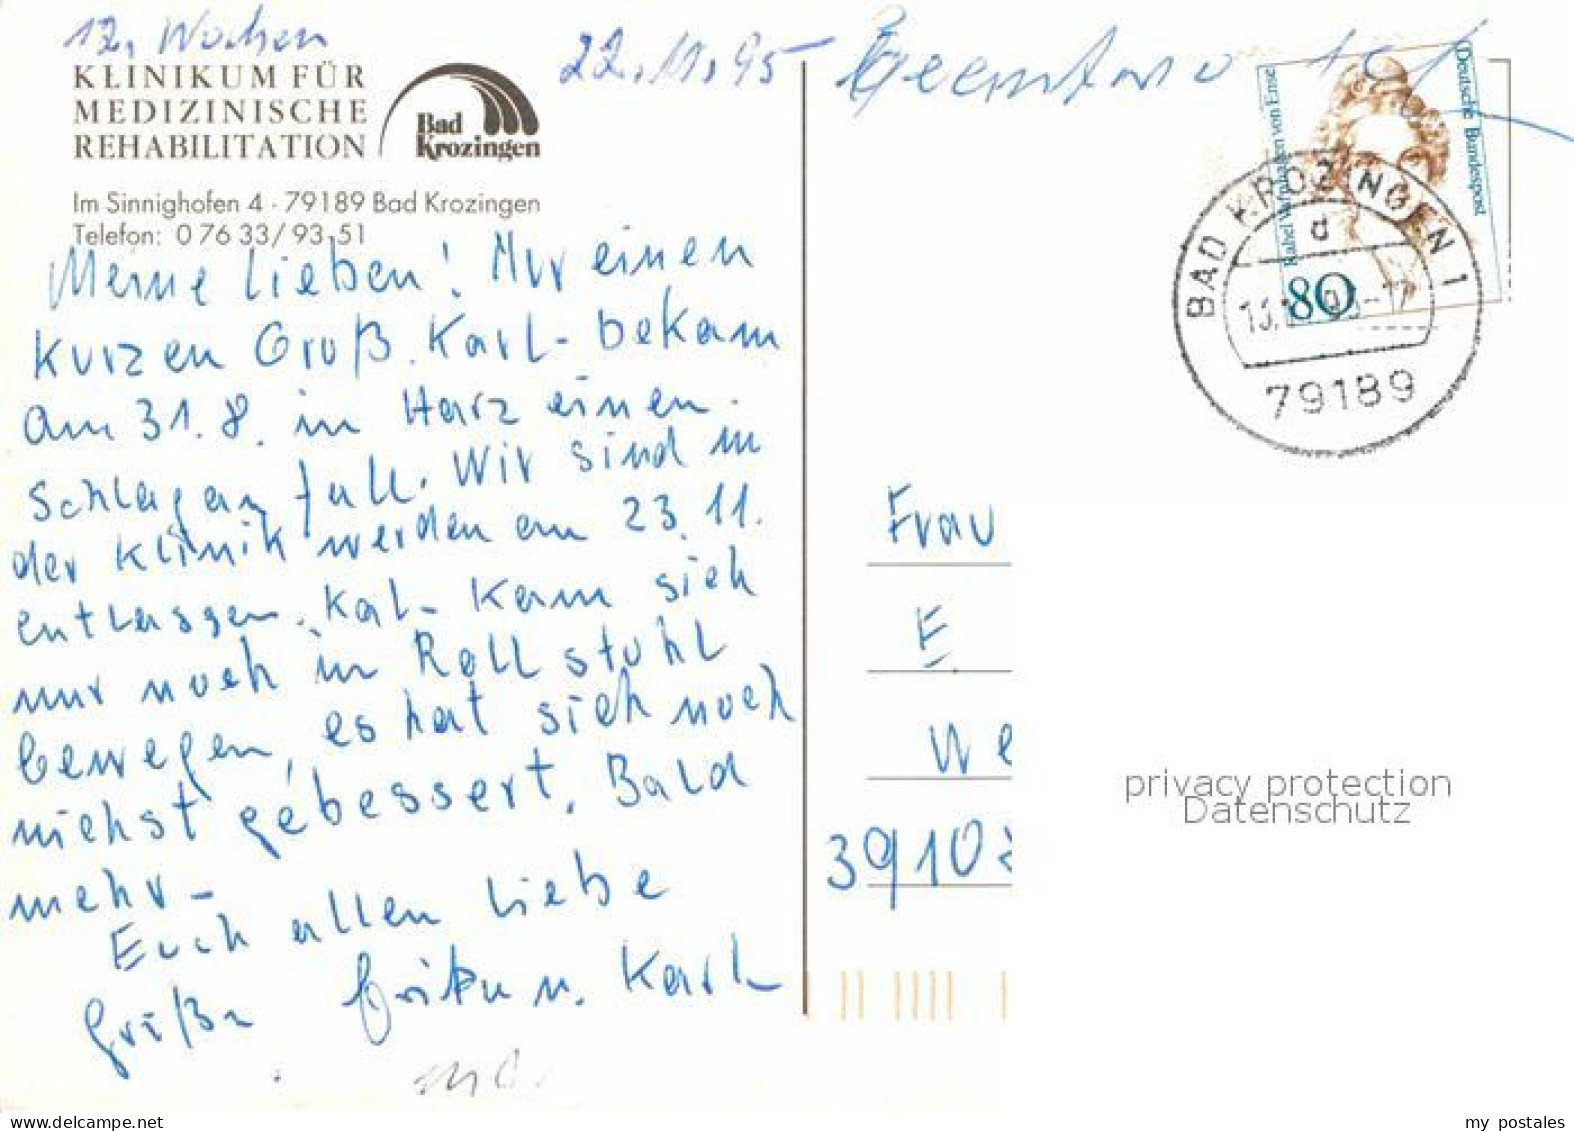 12. Wochen
KLINIKUM FÜR
MEDIZINISCHE
REHABILITATION
Bad
Krozingen
Im Sinnighofen 4 · 79189 Bad Krozingen
Telefon: 0 76 33/ 93 51
22.11.95
Meine Lieben! Nur einen
kurzen Gruß. Karl- bekam
am 31.8. in Harz einen
Schlagan fall. Wir sind in
der Klinik werden am 23.11.
entlassen. Karl- kann sich
nur noch in Rollstuhl
bewegen, es hat sich noch
nichst gebessert. Bald
mehr-
Euch allen liebe
Grüße Erika u. Karl
Deutsche Bundespost
Rahel Varnhagen von Ense
80
BAD KROZINGEN 1
d
79189
Frau
E
We
3910
privacy protection
Datenschutz
my postales